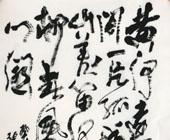 黄河远
间一片孤城
仞山羌笛何
柳春风
门关